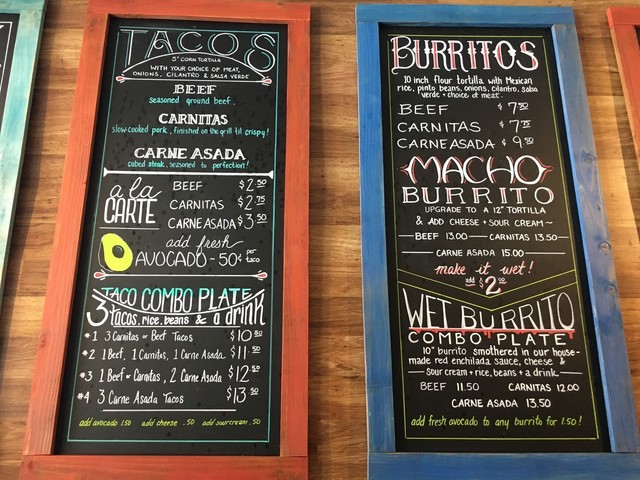 TACOS
5" CORN TORTILLA
WITH YOUR CHOICE OF MEAT,
ONIONS, CILANTRO & SALSA VERDE
BEEF
seasoned ground beef.
CARNITAS
slow-cooked pork, finished on the grill til crispy!
CARNE ASADA
cubed steak, seasoned to perfection!
a la CARTE
BEEF $2.50
CARNITAS $2.75
CARNE ASADA $3.50
add fresh
AVOCADO ~ 50¢ per taco
TACO COMBO PLATE
3 tacos, rice, beans & a drink
#1 3 Carnitas or Beef Tacos $10.50
#2 1 Beef, 1 Carnitas, 1 Carne Asada $11.50
#3 1 Beef or Carnitas, 2 Carne Asada $12.50
#4 3 Carne Asada Tacos $13.50
add avocado 1.50 add cheese .50 add sour cream .50
BURRITOS
10 inch flour tortilla with Mexican
rice, pinto beans, onions, cilantro, salsa
verde + choice of meat.
BEEF $7.50
CARNITAS $7.75
CARNE ASADA $9.50
MACHO
BURRITO
UPGRADE TO A 12" TORTILLA
& ADD CHEESE + SOUR CREAM ~
BEEF 13.00 — CARNITAS 13.50
CARNE ASADA 15.00
make it wet!
add $2.00
WET BURRITO
COMBO PLATE
10" burrito smothered in our house-
made red enchilada sauce, cheese &
sour cream + rice, beans + a drink
BEEF 11.50 CARNITAS 12.00
CARNE ASADA 13.50
add fresh avocado to any burrito for 1.50!